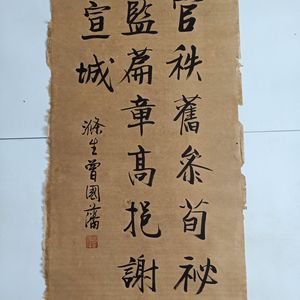 官秩舊參荀祕
監篇章高挹謝
宣城
滌生曾國藩